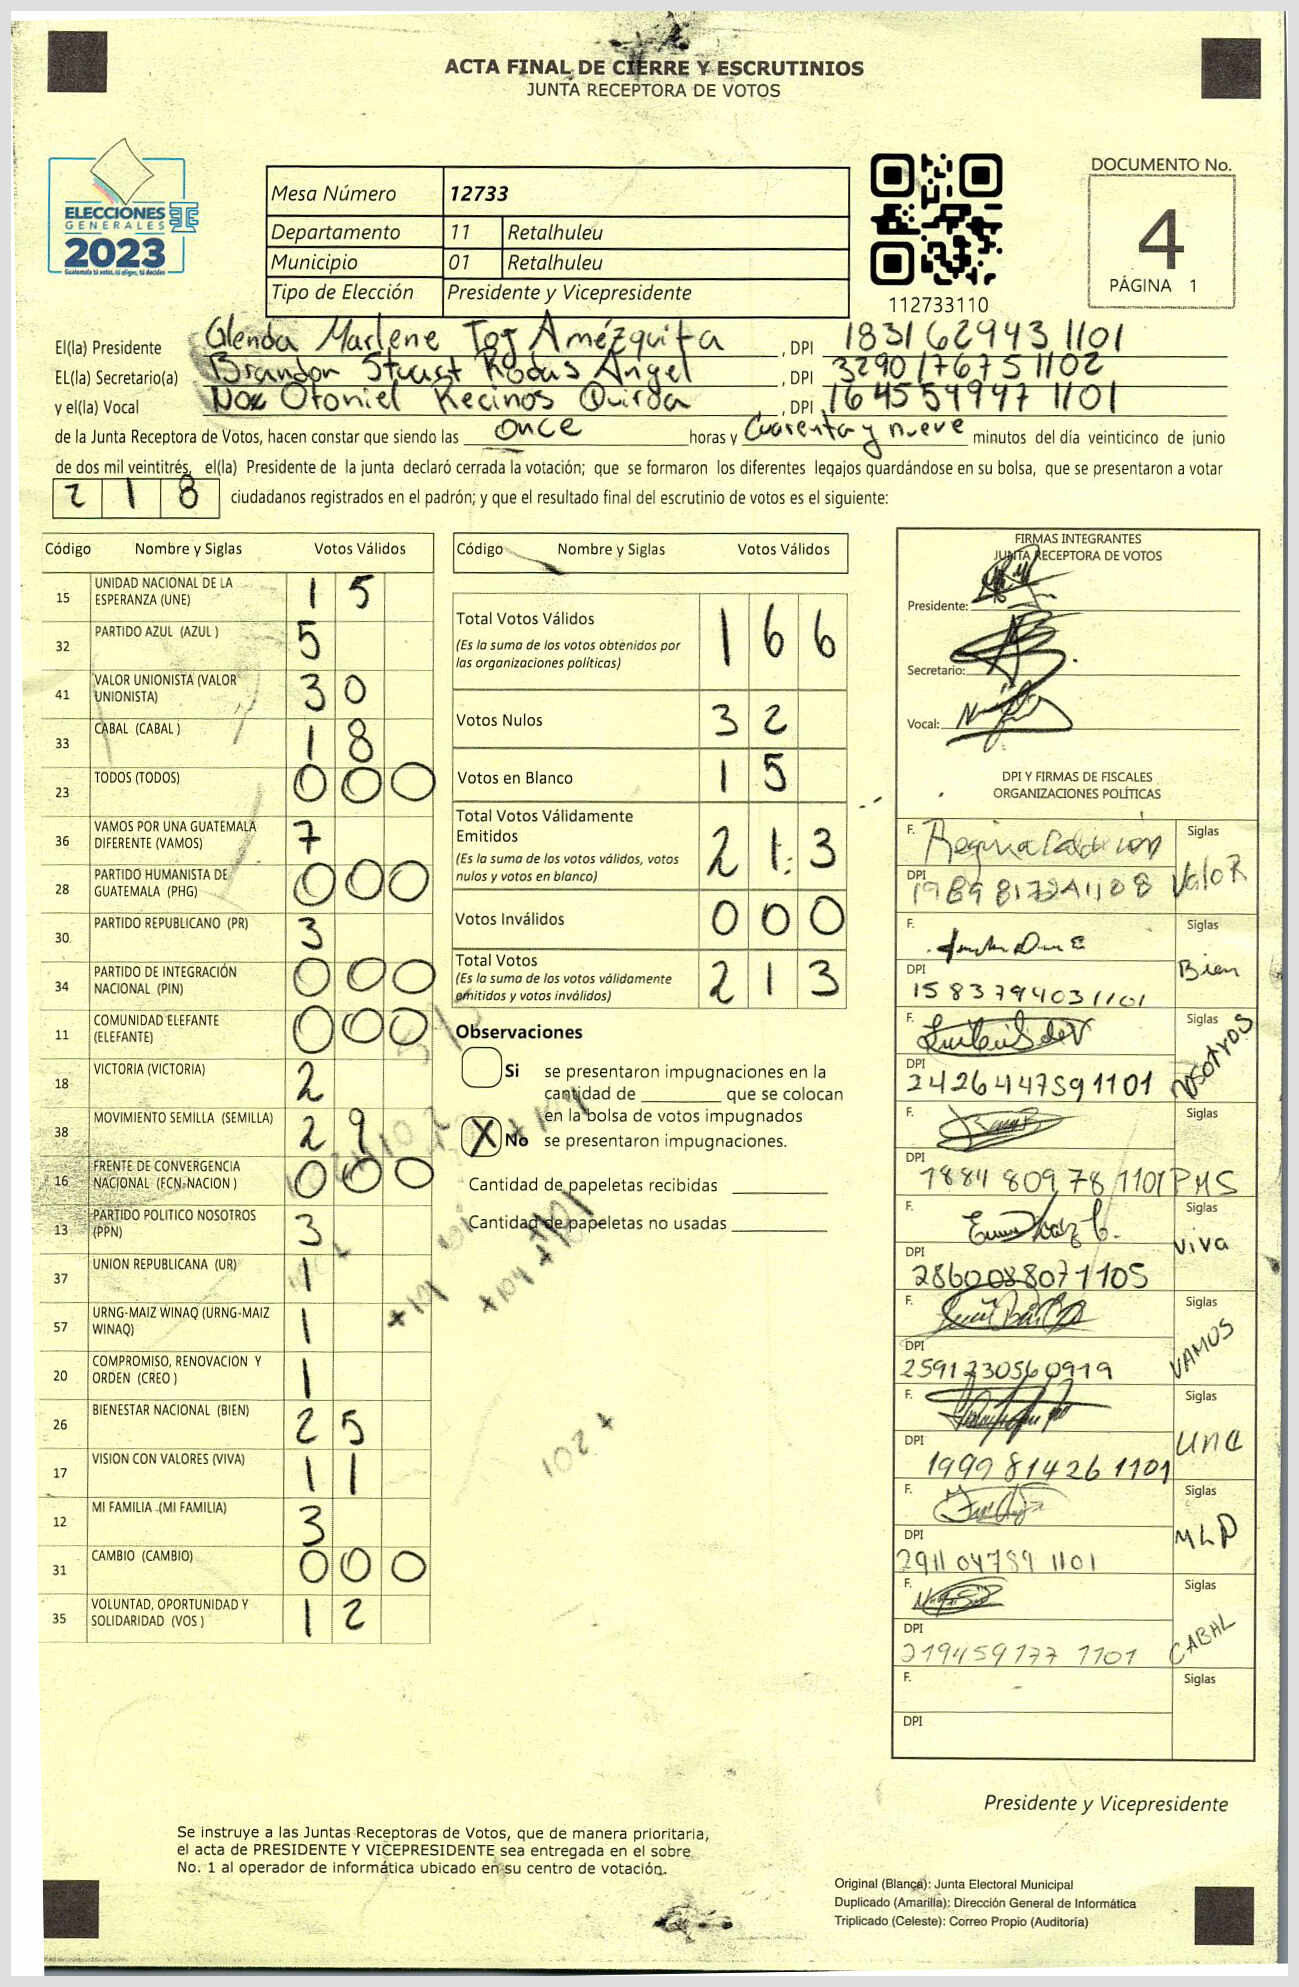 ACTA FINAL DE CIERRE Y ESCRUTINIOS
JUNTA RECEPTORA DE VOTOS
ELECCIONES
GENERALES
2023
Guatemala tú votas, tú eliges, tú decides
Mesa Número 12733
Departamento 11 Retalhuleu
Municipio 01 Retalhuleu
Tipo de Elección Presidente y Vicepresidente
112733110
DOCUMENTO No.
4
PÁGINA 1
El(la) Presidente Glenda Marlene Toj Amézquita , DPI 1831629431101
EL(la) Secretario(a) Brandon Stuart Rodas Angel , DPI 3290176751102
y el(la) Vocal Noe Otoniel Recinos Quiroa , DPI 1645549471101
de la Junta Receptora de Votos, hacen constar que siendo las once horas y Cuarenta y nueve minutos del día veinticinco de junio
de dos mil veintitrés, el(la) Presidente de la junta declaró cerrada la votación; que se formaron los diferentes legajos guardándose en su bolsa, que se presentaron a votar
218 ciudadanos registrados en el padrón; y que el resultado final del escrutinio de votos es el siguiente:
Código Nombre y Siglas Votos Válidos
15 UNIDAD NACIONAL DE LA ESPERANZA (UNE) 15
32 PARTIDO AZUL (AZUL ) 5
41 VALOR UNIONISTA (VALOR UNIONISTA) 30
33 CABAL (CABAL ) 18
23 TODOS (TODOS) 000
36 VAMOS POR UNA GUATEMALA DIFERENTE (VAMOS) 7
28 PARTIDO HUMANISTA DE GUATEMALA (PHG) 000
30 PARTIDO REPUBLICANO (PR) 3
34 PARTIDO DE INTEGRACIÓN NACIONAL (PIN) 000
11 COMUNIDAD ELEFANTE (ELEFANTE) 000
18 VICTORIA (VICTORIA) 2
38 MOVIMIENTO SEMILLA (SEMILLA) 29
16 FRENTE DE CONVERGENCIA NACIONAL (FCN-NACION ) 000
13 PARTIDO POLITICO NOSOTROS (PPN) 3
37 UNION REPUBLICANA (UR) 1
57 URNG-MAIZ WINAQ (URNG-MAIZ WINAQ) 1
20 COMPROMISO, RENOVACION Y ORDEN (CREO ) 1
26 BIENESTAR NACIONAL (BIEN) 25
17 VISION CON VALORES (VIVA) 11
12 MI FAMILIA (MI FAMILIA) 3
31 CAMBIO (CAMBIO) 000
35 VOLUNTAD, OPORTUNIDAD Y SOLIDARIDAD (VOS ) 12
Código Nombre y Siglas Votos Válidos
Total Votos Válidos 166
(Es la suma de los votos obtenidos por
las organizaciones políticas)
Votos Nulos 32
Votos en Blanco 15
Total Votos Válidamente
Emitidos 213
(Es la suma de los votos válidos, votos
nulos y votos en blanco)
Votos Inválidos 000
Total Votos 213
(Es la suma de los votos válidamente
emitidos y votos inválidos)
Observaciones
Si se presentaron impugnaciones en la
cantidad de ________ que se colocan
en la bolsa de votos impugnados
X No se presentaron impugnaciones.
Cantidad de papeletas recibidas ________
Cantidad de papeletas no usadas ________
FIRMAS INTEGRANTES
JUNTA RECEPTORA DE VOTOS
Presidente:
Secretario:
Vocal:
DPI Y FIRMAS DE FISCALES
ORGANIZACIONES POLÍTICAS
F. Siglas Valor
DPI
F. Siglas Bien
DPI 1583794031101
F. Siglas Nosotros
DPI 2426447591101
F. Siglas PMS
DPI 1884809781101
F. Siglas viva
DPI 2860088071105
F. Siglas VAMOS
DPI 2591230560919
F. Siglas une
DPI 1999814261101
F. Siglas MLP
DPI 2911047591101
F. Siglas CABAL
DPI 2194591771101
F. Siglas
DPI
Presidente y Vicepresidente
Se instruye a las Juntas Receptoras de Votos, que de manera prioritaria,
el acta de PRESIDENTE Y VICEPRESIDENTE sea entregada en el sobre
No. 1 al operador de informática ubicado en su centro de votación.
Original (Blanca): Junta Electoral Municipal
Duplicado (Amarilla): Dirección General de Informática
Triplicado (Celeste): Correo Propio (Auditoría)